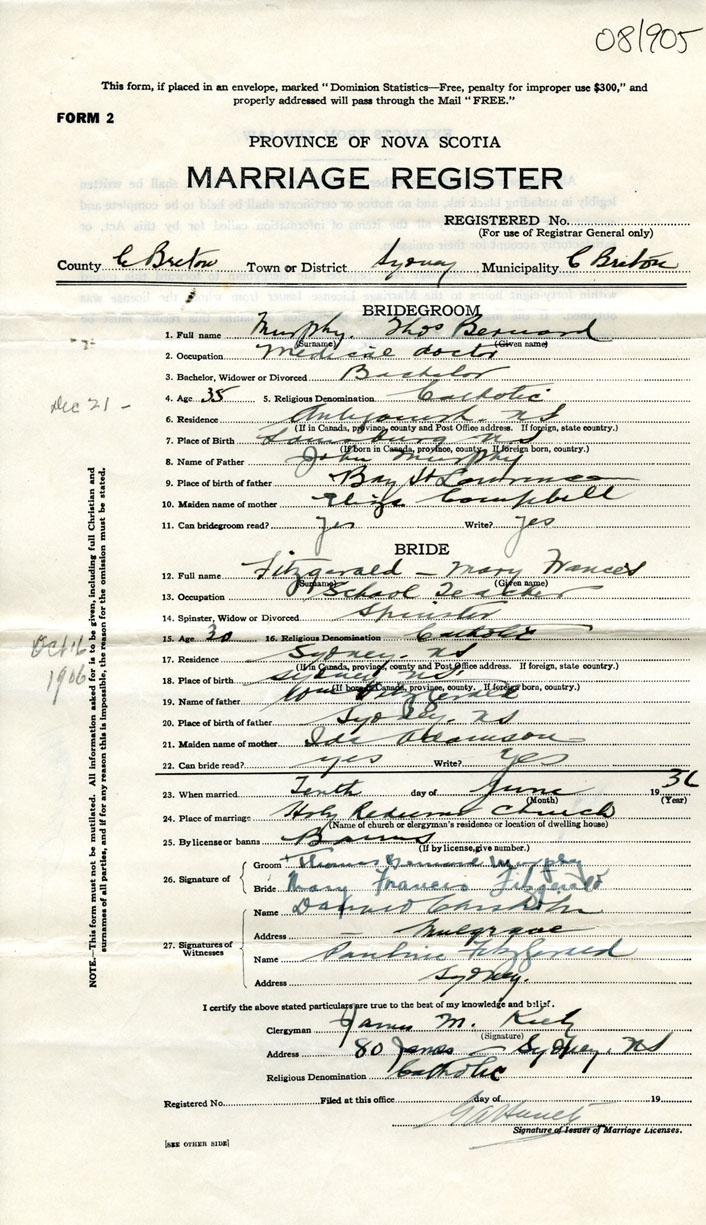 081905
This form, if placed in an envelope, marked "Dominion Statistics—Free, penalty for improper use $300," and
properly addressed will pass through the Mail "FREE."
FORM 2
PROVINCE OF NOVA SCOTIA
MARRIAGE REGISTER
REGISTERED No.
(For use of Registrar General only)
County C Breton Town or District Sydney Municipality C Breton
BRIDEGROOM
1. Full name Murphy. Thos Bernard
(Surname) (Given name)
2. Occupation Medical doctor
3. Bachelor, Widower or Divorced Bachelor
Dec 21 -
4. Age 35 5. Religious Denomination Catholic
6. Residence Antigonish. NS
(If in Canada, province, county and Post Office address. If foreign, state country.)
7. Place of Birth Louisburg NS
(If born in Canada, province, county. If foreign born, country.)
8. Name of Father John Murphy
9. Place of birth of father Bay St Lawrence
10. Maiden name of mother Eliza Campbell
11. Can bridegroom read? yes Write? yes
BRIDE
12. Full name Fitzgerald - Mary Frances
(Surname) (Given name)
13. Occupation School Teacher
14. Spinster, Widow or Divorced Spinster
15. Age 30 16. Religious Denomination Catholic
Oct 16
1906
17. Residence Sydney. NS
(If in Canada, province, county and Post Office address. If foreign, state country.)
18. Place of birth Sydney NS.
(If born in Canada, province, county. If foreign born, country.)
19. Name of father Wm Fitzgerald
20. Place of birth of father Sydney. NS
21. Maiden name of mother Ida
22. Can bride read? yes Write? Yes
23. When married Tenth day of June 1936
(Month) (Year)
24. Place of marriage Holy Redeemer Church
(Name of church or clergyman's residence or location of dwelling house)
25. By license or banns Banns
(If by license, give number.)
26. Signature of
Groom Thomas Bernard Murphy
Bride Mary Frances Fitzgerald
27. Signatures of Witnesses
Name Chisholm
Address Mulgrave
Name Pauline Fitzgerald
Address Sydney.
I certify the above stated particulars are true to the best of my knowledge and belief.
Clergyman James M. Kiely
(Signature)
Address 80 James - Sydney. NS
Religious Denomination Catholic
Registered No. Filed at this office day of 19
Signature of Issuer of Marriage Licenses.
[SEE OTHER SIDE]
NOTE.—This form must not be mutilated. All information asked for is to be given, including full Christian and
surnames of all parties, and if for any reason this is impossible, the reason for the omission must be stated.